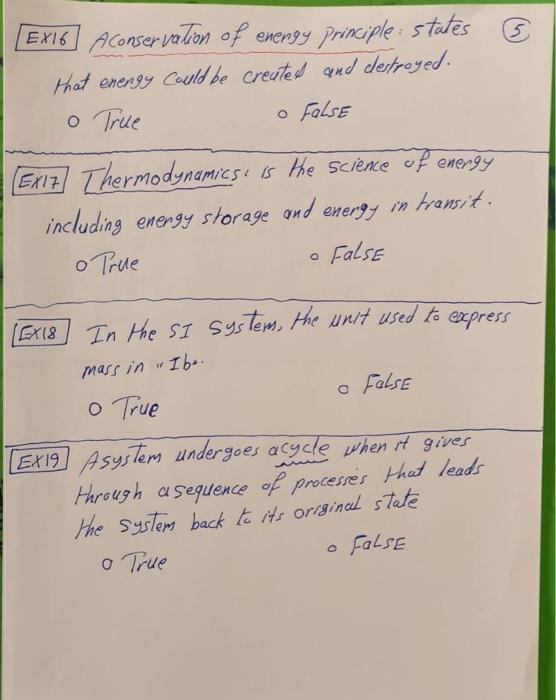 EX16 A conservation of energy principle: states 5
that energy could be created and destroyed.
o True o FalSE
EX17 Thermodynamics: is the science of energy
including energy storage and energy in transit.
o True o FalSE
EX18 In the SI System, the unit used to express
mass in "Ib".
o FalSE
o True
EX19 A system undergoes a cycle when it gives
through a sequence of processes that leads
the system back to its original state
o FalSE
o True